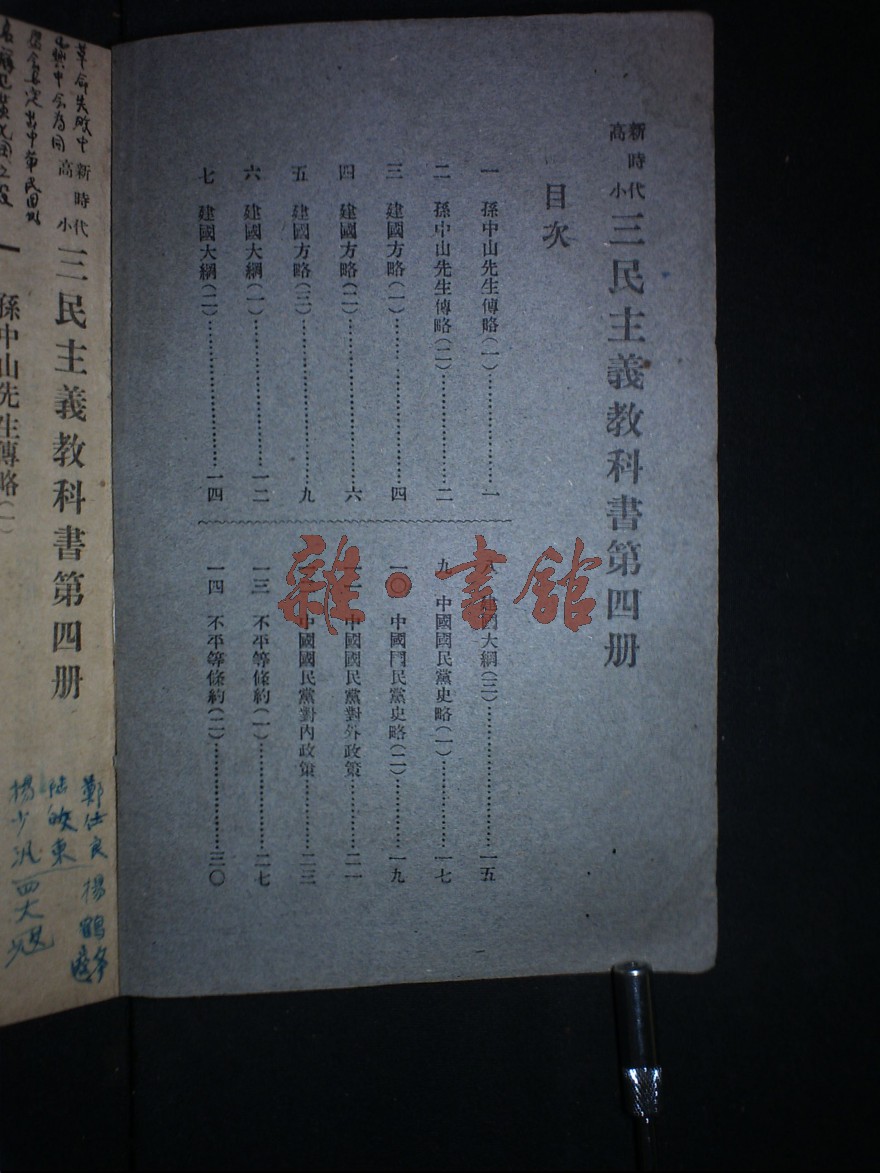 新時代高小 三民主義教科書第四册
目次
一 孫中山先生傳略(一)⋯⋯一
二 孫中山先生傳略(二)⋯⋯二
三 建國方略(一)⋯⋯四
四 建國方略(二)⋯⋯六
五 建國方略(三)⋯⋯九
六 建國大綱(一)⋯⋯一二
七 建國大綱(二)⋯⋯一四
建國大綱(三)⋯⋯一五
九 中國國民黨史略(一)⋯⋯一七
一〇 中國國民黨史略(二)⋯⋯一九
中國國民黨對外政策⋯⋯二一
中國國民黨對內政策⋯⋯二三
一三 不平等條約(一)⋯⋯二七
一四 不平等條約(二)⋯⋯三〇
雜·書館
新時代高小 三民主義教科書第四册
一 孫中山先生傳略(一)
革命失敗中
興中会為同
鄭仕良 楊鶴
陆皓東
楊少汎 四大冦